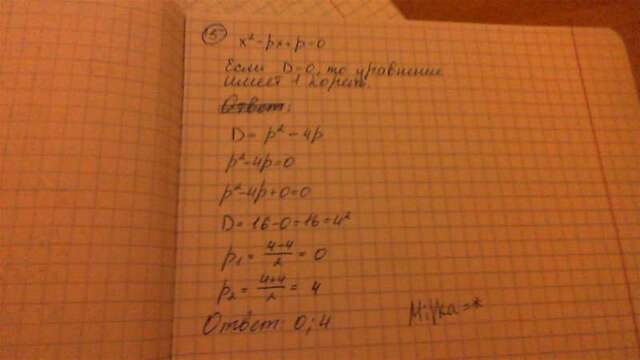 5
x²-px+p=0
Если D=0, то уравнение
имеет 1 корень.
Ответ:
D= p²-4p
p²-4p=0
p²-4p+0=0
D= 16-0=16=4²
p₁= (4-4)/2 = 0
p₂= (4+4)/2 = 4
Ответ: 0; 4
Milka=*